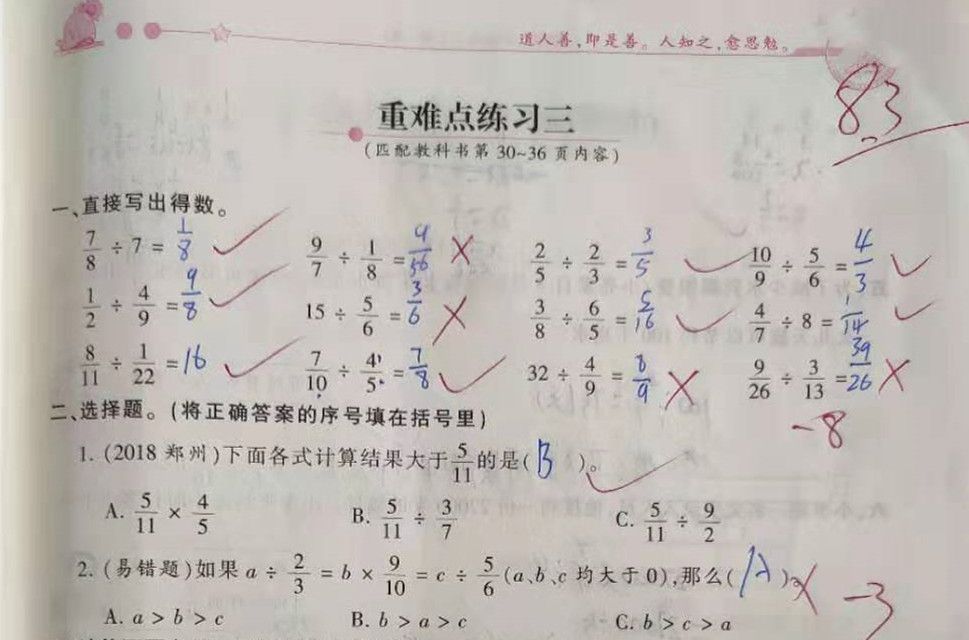 道人善,即是善。人知之,愈思勉。
83
重难点练习三
(匹配教科书第30~36页内容)
一、直接写出得数。
7/8 ÷ 7 = 1/8 ✓ 9/7 ÷ 1/8 = 9/56 × 2/5 ÷ 2/3 = 3/5 ✓ 10/9 ÷ 5/6 = 4/3 ✓
1/2 ÷ 4/9 = 9/8 ✓ 15 ÷ 5/6 = 3/6 × 3/8 ÷ 6/5 = 5/16 ✓ 4/7 ÷ 8 = 1/14 ✓
8/11 ÷ 1/22 = 16 ✓ 7/10 ÷ 4/5 = 7/8 ✓ 32 ÷ 4/9 = 8/9 × 9/26 ÷ 3/13 = 39/26 ×
-8
二、选择题。(将正确答案的序号填在括号里)
1. (2018 郑州)下面各式计算结果大于5/11的是( B )。 ✓
A. 5/11 × 4/5 B. 5/11 ÷ 3/7 C. 5/11 ÷ 9/2
2. (易错题)如果 a ÷ 2/3 = b × 9/10 = c ÷ 5/6 (a、b、c 均大于 0),那么( A )。 × -3
A. a > b > c B. b > a > c C. b > c > a